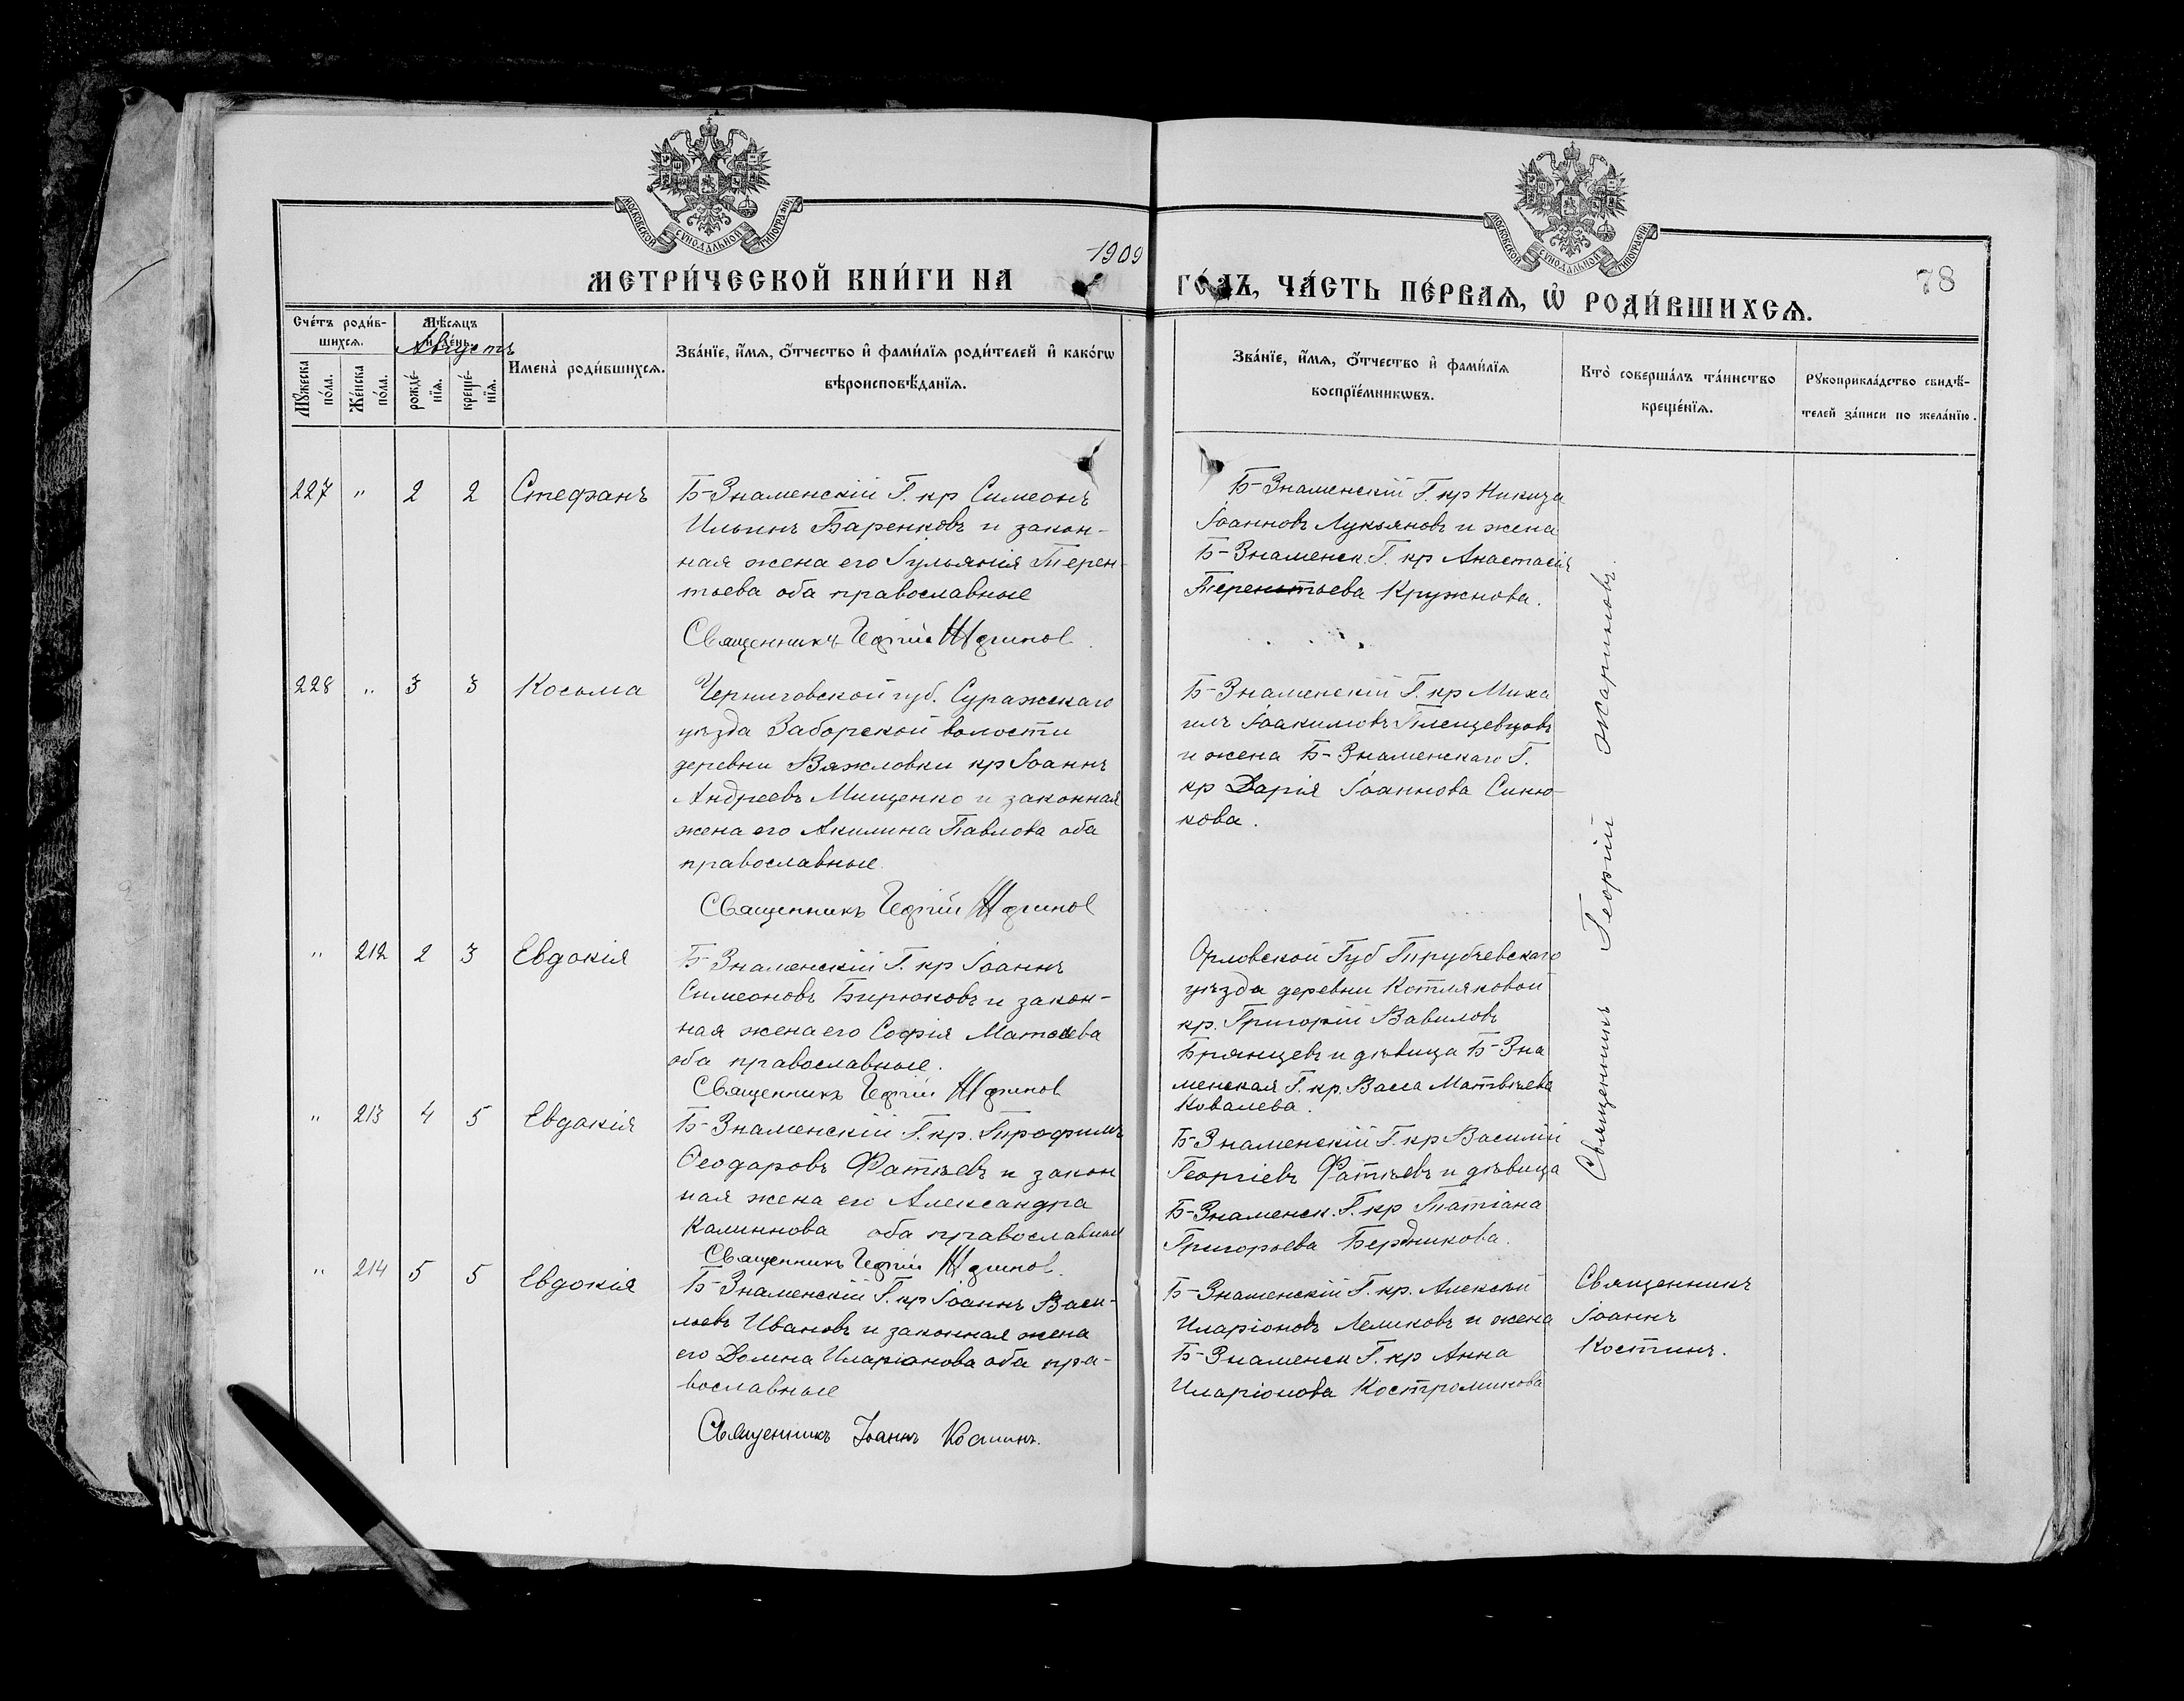 МОСКОВСКОЙ СѴНОДАЛЬНОЙ ТИПОГРАФІИ
МОСКОВСКОЙ СѴНОДАЛЬНОЙ ТИПОГРАФІИ
1909
МЕТРИ́ЧЕСКОЙ КНИ́ГИ НА ГО́ДЪ, ЧА́СТЬ ПЕ́РВАѦ, Ѡ҆ РОДИ́ВШИХСѦ.
78
Сче́тъ роди́в-
шихсѧ.
Мѣ́сѧцъ
и де́нь.
Августъ
Мꙋ́жеска
по́ла.
Же́нска
по́ла.
рожде́-
нїѧ.
креще́-
нїѧ.
Имена̀ роди́вшихсѧ.
Зва́нїе, и҆́мѧ, ѻ҆́тчество и҆ фами́лїѧ роди́телей и҆ како́гѡ
вѣроисповѣ́данїѧ.
Зва́нїе, и҆́мѧ, ѻ҆́тчество и҆ фами́лїѧ
воспрїе́мникѡвъ.
Кто̀ соверша́лъ та́инство
креще́нїѧ.
Рꙋкоприкла́дство свидѣ́-
телей за́писи по жела́нїю.
227 " 2 2 Стефанъ
Б-Знаменскій Г. кр Симеонъ
Ильинъ Баренковъ и закон-
ная жена его Іульянія Терен-
тьева оба православные
Священникъ Георгій Жаринов
Б-Знаменскій Г. кр Никита
Іоанновъ Лукьяновъ и жена
Б-Знаменск. Г. кр Анастасія
Терентьева Кружнова.
228 " 3 3 Косьма
Черниговской губ. Суражскаго
уѣзда Заборской волости
деревни Вяжловки кр Іоаннъ
Андреевъ Мищенко и законная
жена его Акилина Павлова оба
православные
Священникъ Георгій Жаринов
Б-Знаменскій Г. кр Миха
илъ Іоакимовъ
и жена Б-Знаменскаго Г.
кр Дарія Іоаннова Синю-
кова.
" 212 2 3 Евдокія
Б-Знаменскій Г. кр Іоаннъ
Симеоновъ Бирюковъ и закон-
ная жена его Софія
оба православные.
Священникъ Георгій Жаринов
Орловской Губ Трубчевскаго
уѣзда деревни Котляковой
кр. Григорій Вавиловъ
Брянцевъ и дѣвица Б-Зна
менская Г. кр. Васса Матвѣева
Ковалева.
" 213 4 5 Евдокія
Б-Знаменскій Г. кр. Трофимъ
Ѳеодоровъ Фатѣевъ и закон
ная жена его Александра
Калинова оба православные
Священникъ Георгій Жаринов.
Б-Знаменскій Г. кр Василій
Георгіевъ Фатѣевъ и дѣвица
Б-Знаменск. Г. кр Татіана
Григорьева Бердникова.
Священникъ Георгій Жариновъ.
" 214 5 5 Евдокія
Б-Знаменскій Г. кр Іоаннъ Васи-
льевъ Ивановъ и законная жена
его Домна Иларіонова оба пра-
вославные
Священникъ Іоаннъ Костинъ.
Б-Знаменскій Г. кр. Алексѣй
Иларіоновъ Лемиковъ и жена
Б-Знаменск Г. кр Анна
Иларіонова Костромикова
Священникъ
Іоаннъ
Костинъ.